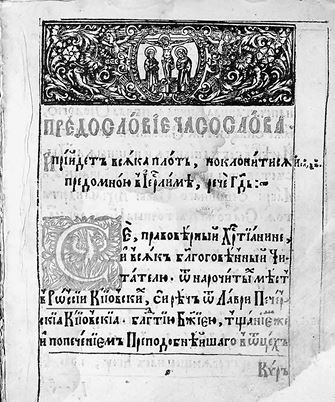 ПРЕДОСЛОВІЕ ЧАСОСЛОВА
Пріидетъ всѧка плоть, поклонитисѧ
предомною въ Іерⷭ҇лимѣ, рече Гдⷭ҇ь:
СЕ, правовѣрный Хрⷭ҇тїанине,
и всѧкъ благоговѣнный Чи-
тателю. ѿ нарочитыⷯ мѣстъ
в Рѡссїи Кїовскїѧ, сирѣчь ѿ Лаври Печер
скїѧ Кїовскїѧ. блгⷣтїю Бж҃їею, тщанїемже
и попеченїемъ Преподобнѣишаго в ѿцехъ
Кѵръ